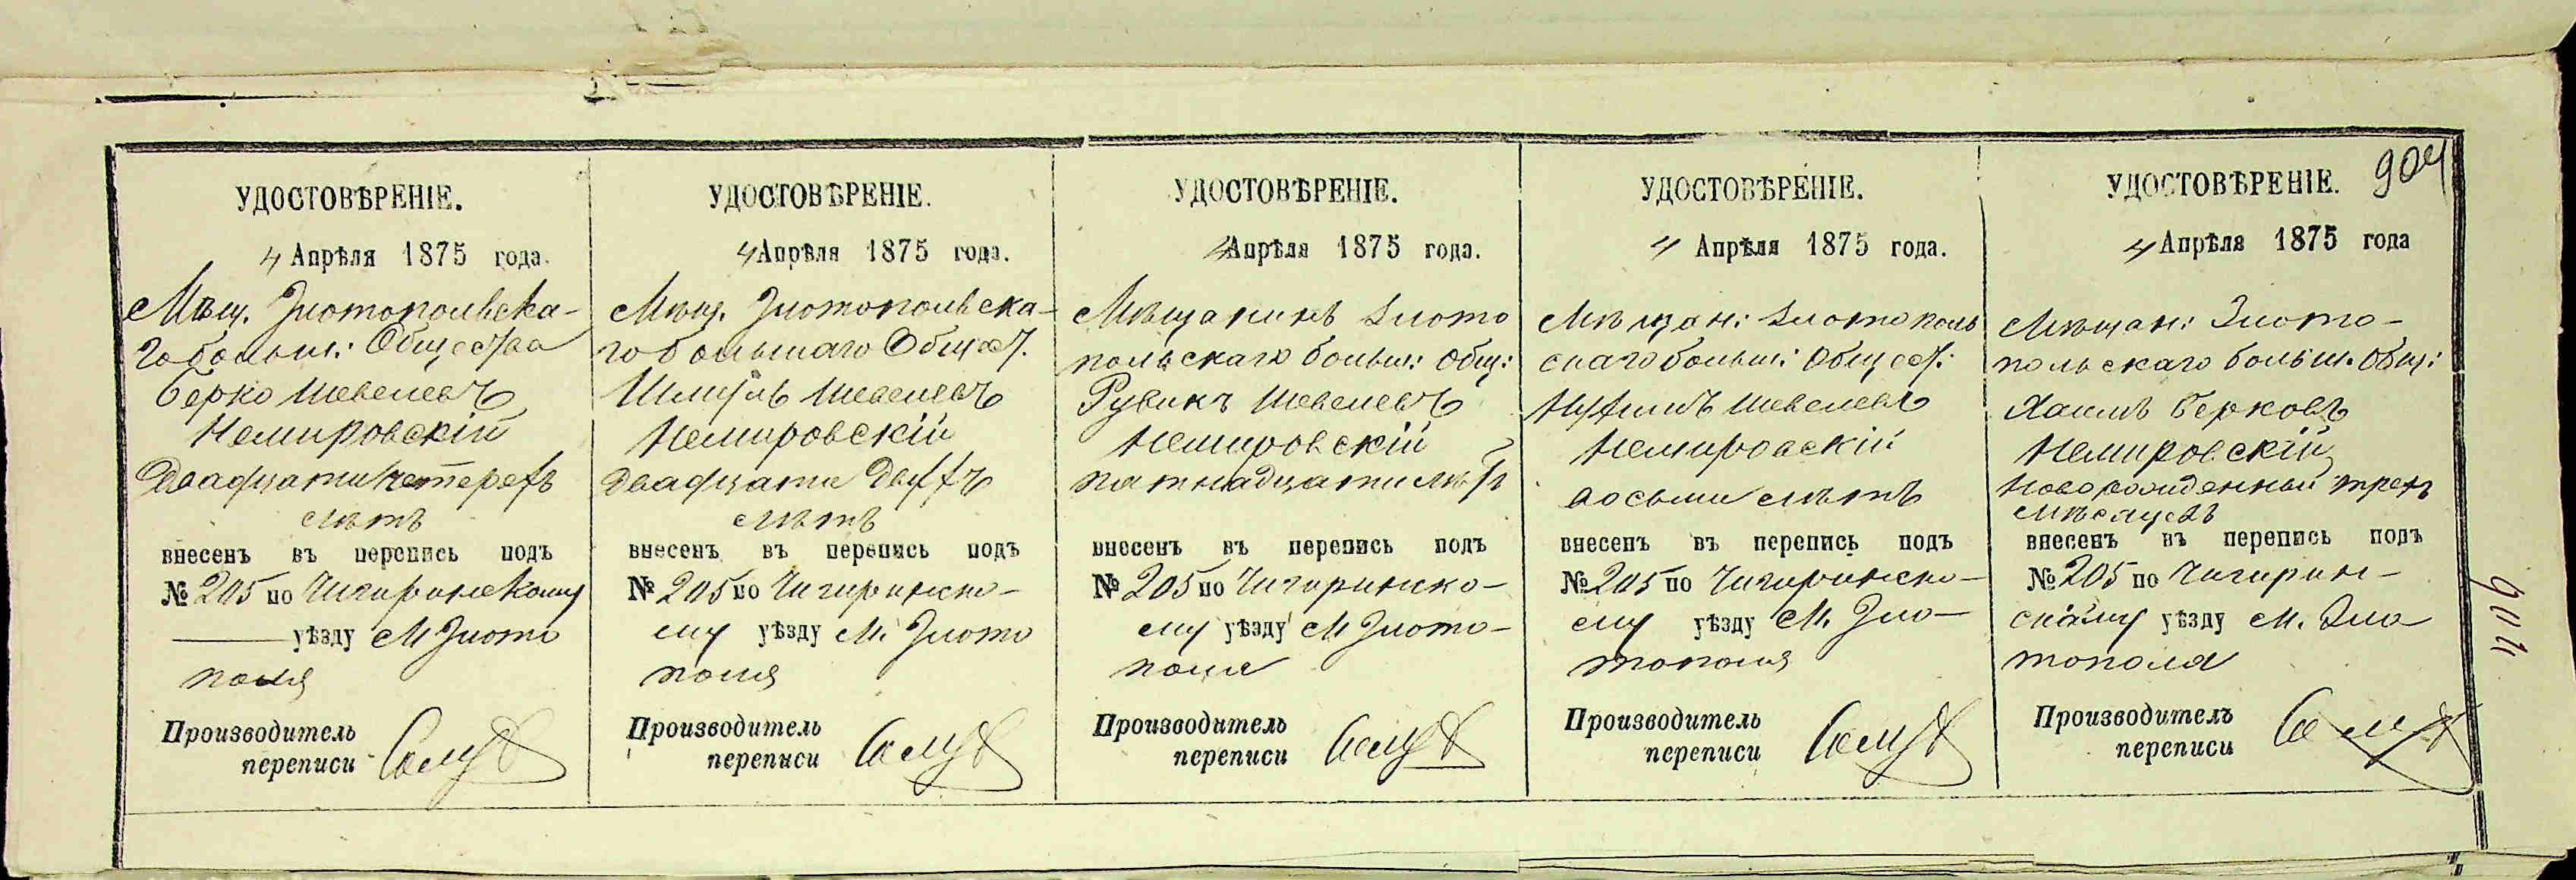 904
УДОСТОВѢРЕНІЕ.
4 Апрѣля 1875 года.
Мѣщ. Златопольска-
го больш: Общества
Берко Шевелевъ
Немировскій
Двадцати четырехъ
лѣтъ
внесенъ въ перепись подъ
№ 205 по Чигиринскому
уѣзду М Злато
поля
Производитель
переписи
УДОСТОВѢРЕНІЕ.
4 Апрѣля 1875 года.
Мѣщ. Златопольска-
го большаго Общест.
Шмуль Шевелевъ
Немировскій
двадцати двухъ
лѣтъ
внесенъ въ перепись подъ
№ 205 по Чигиринско-
му уѣзду М. Злато
поля
Производитель
переписи
УДОСТОВѢРЕНІЕ.
4 Апрѣля 1875 года.
Мѣщанинъ Злато
польскаго больш: Общ:
Рувинъ Шевелевъ
Немировскій
пятнадцати лѣтъ
внесенъ въ перепись подъ
№ 205 по Чигиринско-
му уѣзду М Злато-
поля
Производитель
переписи
УДОСТОВѢРЕНІЕ.
4 Апрѣля 1875 года.
Мѣщан: Златополь
скаго больш: Общест:
Шевелевъ
Немировскій
восьми лѣтъ
внесенъ въ перепись подъ
№ 205 по Чигиринско-
му уѣзду М. Зла-
тополя
Производитель
переписи
УДОСТОВѢРЕНІЕ.
4 Апрѣля 1875 года
Мѣщан: Злато-
польскаго больш. Общ:
Хаимъ Берковъ
Немировскій
новорожденный трехъ
мѣсяцевъ
внесенъ въ перепись подъ
№ 205 по Чигирин-
скому уѣзду М. Зла
тополя
Производитель
переписи
904